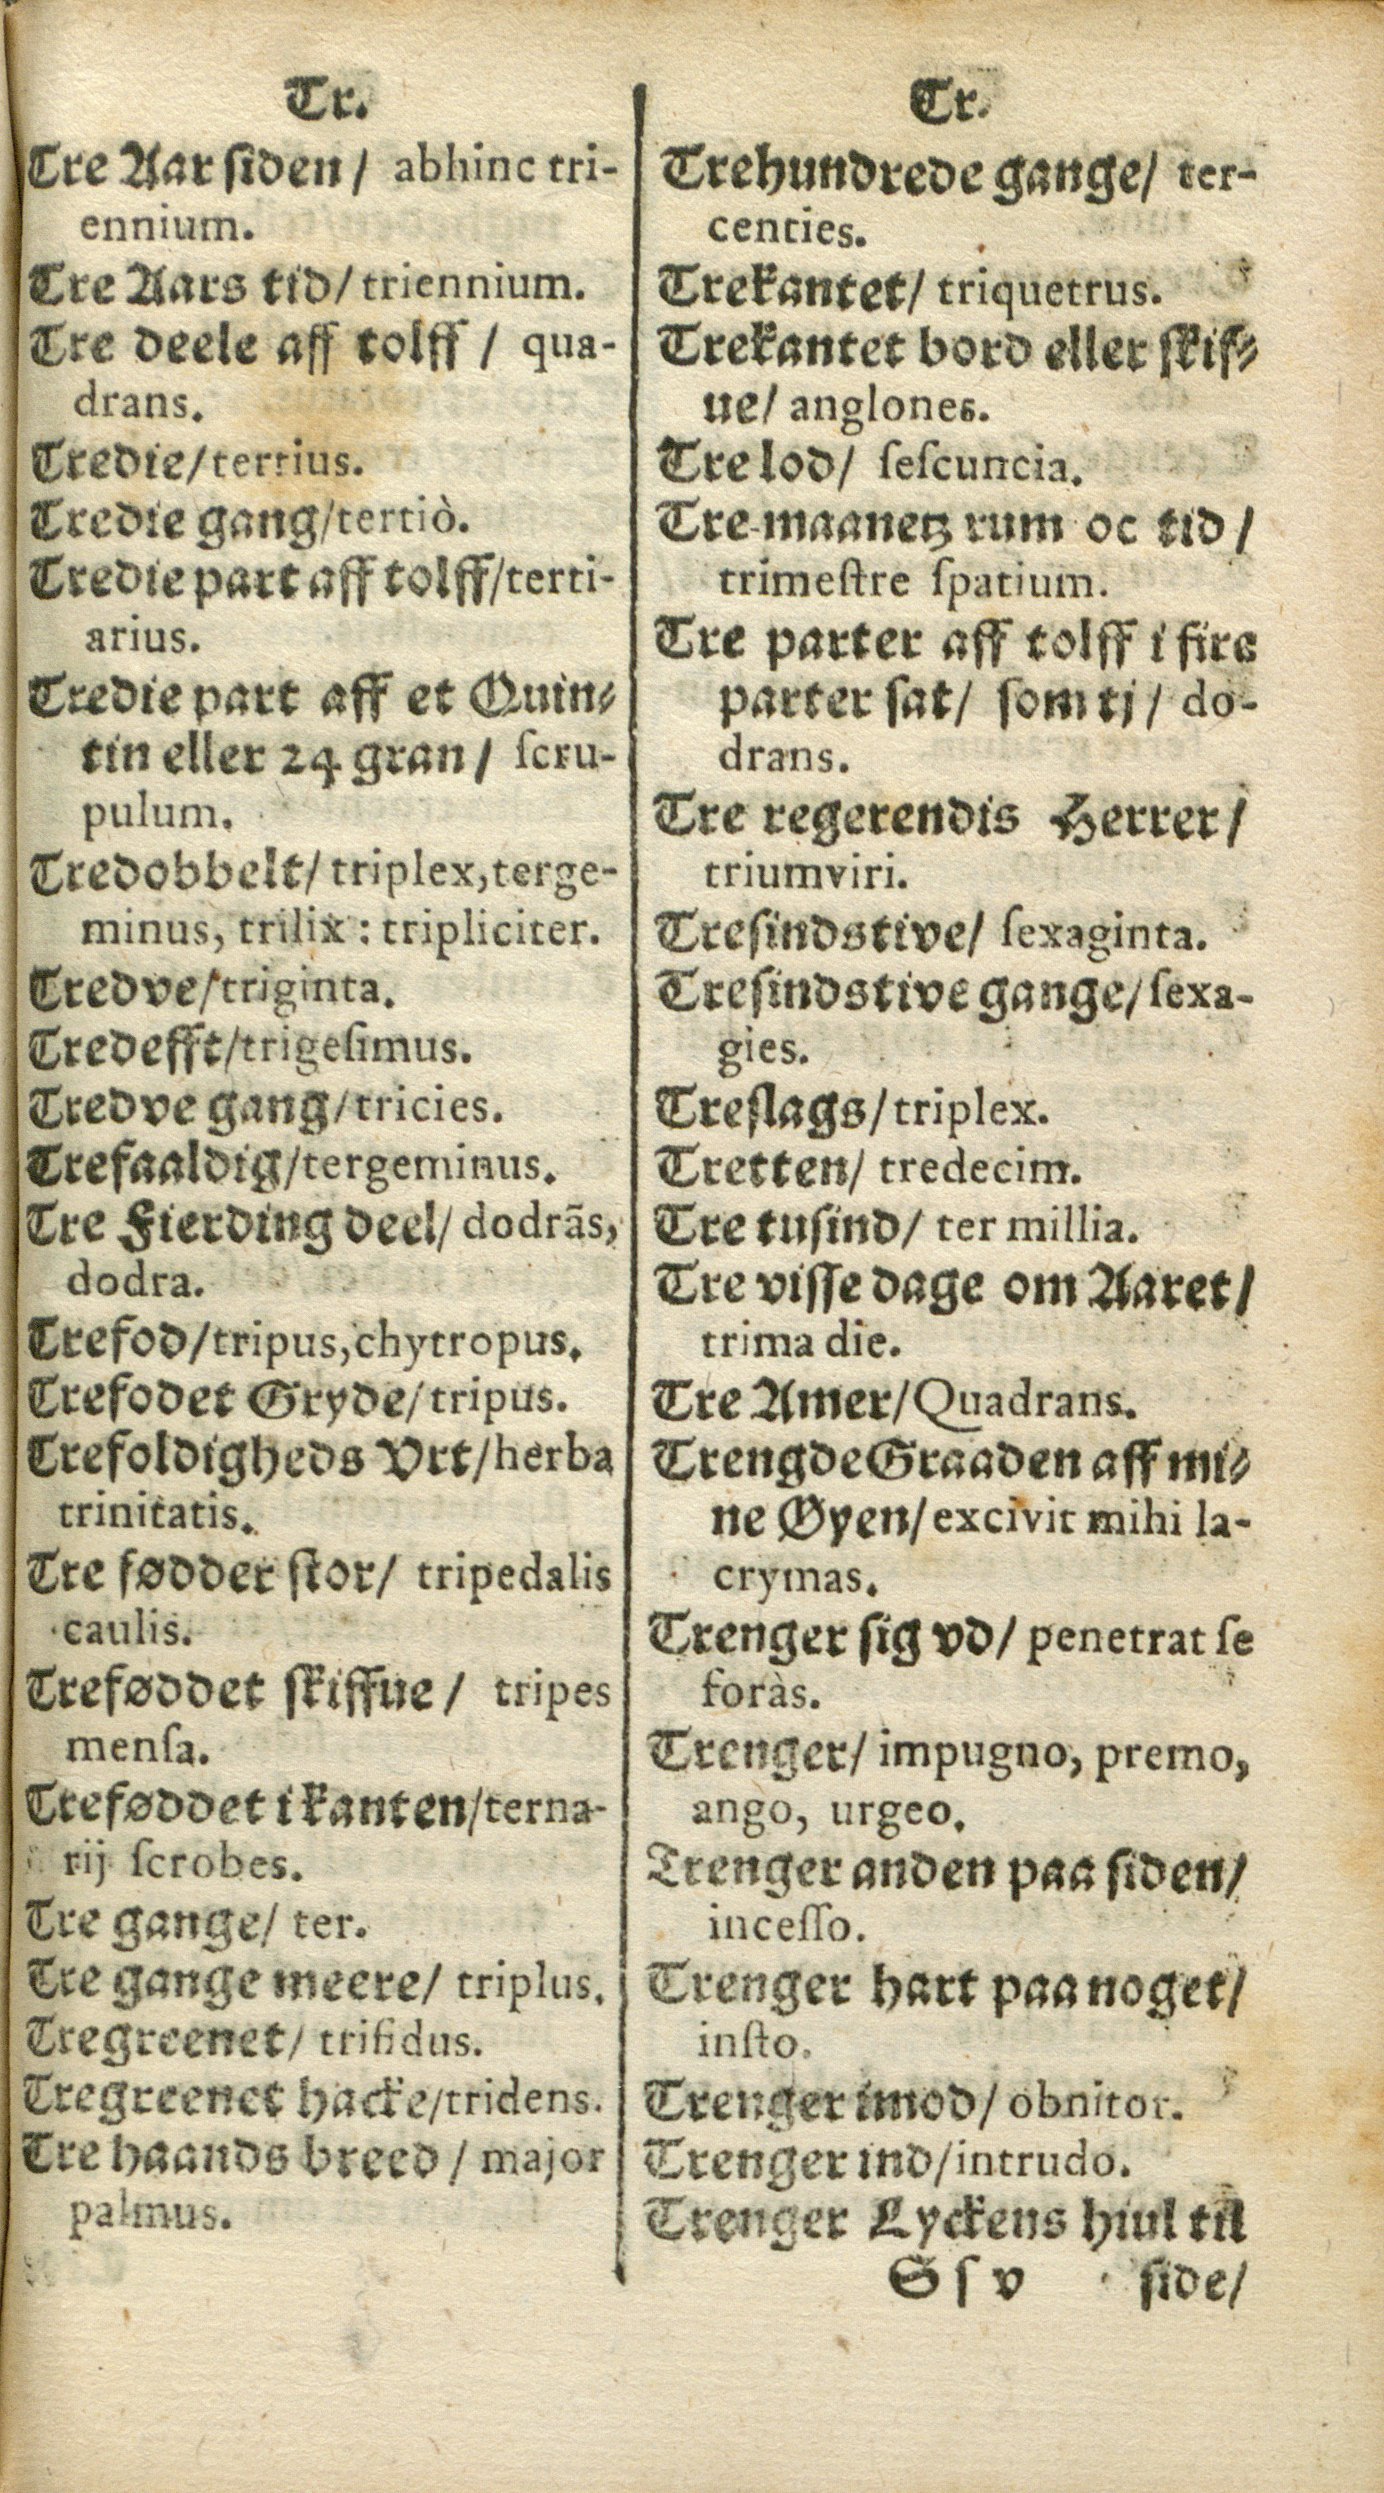 Tr.
Tre Aar siden / abhinc tri-
ennium.
Tre Aars tid/ triennium.
Tre deele aff tolff / qua-
drans.
Tredie/tertius.
Tredie gang/tertiò.
Tredie part aff tolff/terti-
arius.
Tredie part aff et Quin-
tin eller 24 gran / ſcru-
pulum.
Tredobbelt/ triplex, terge-
minus, trilix : tripliciter.
Tredve/triginta.
Tredefft/trigeſimus.
Tredve gang/tricies.
Trefaaldig/tergeminus.
Tre Fierding deel/ dodrãs,
dodra.
Trefod/tripus, chytropus.
Trefodet Gryde/ tripus.
Trefoldigheds Vrt/herba
trinitatis.
Tre fødder ſtor/ tripedalis
caulis.
Treføddet ſkiffue / tripes
menſa.
Treføddet i kanten/terna-
rij ſcrobes.
Tre gange/ ter.
Tre gange meere/ triplus.
Tregreenet/ trifidus.
Tregreenet hacke/tridens.
Tre haands breed / major
palmus.
Tr.
Trehundrede gange/ ter-
centies.
Trekantet/ triquetrus.
Trekantet bord eller ſkif-
ue/ anglones.
Tre lod/ ſeſcuncia.
Tre maanetz rum oc tid /
trimeſtre ſpatium.
Tre parter aff tolff i fire
parter ſat/ ſom tj / do-
drans.
Tre regerendis Herrer /
triumviri.
Treſindstive/ ſexaginta.
Treſindstive gange/ ſexa-
gies.
Treſlags/ triplex.
Tretten/ tredecim.
Tre tuſind/ ter millia.
Tre viſſe dage om Aaret /
trima die.
Tre Amer/Quadrans.
Trengde Graaden aff mi-
ne Øyen/ excivit mihi la-
crymas.
Trenger ſig vd/ penetrat ſe
foràs.
Trenger/ impugno, premo,
ango, urgeo.
Trenger anden paa ſiden/
inceſſo.
Trenger hart paa noget/
inſto.
Trenger imod/ obnitor.
Trenger ind/intrudo.
Trenger Lyckens hiul til
S ſ v ſide/